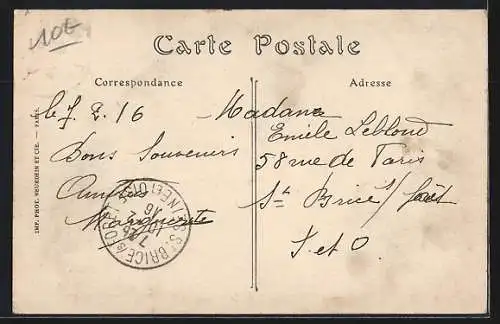 10€
Carte Postale
Correspondance
Adresse
le 7. 2. 16
Bons Souvenirs
Amitiés
Marguerite
Madame
Emile Leblond
58 rue de Paris
St Brice s/ forêt
S et O.
IMP. PHOT. NEURDEIN ET CIE. — PARIS.
ST BRICE